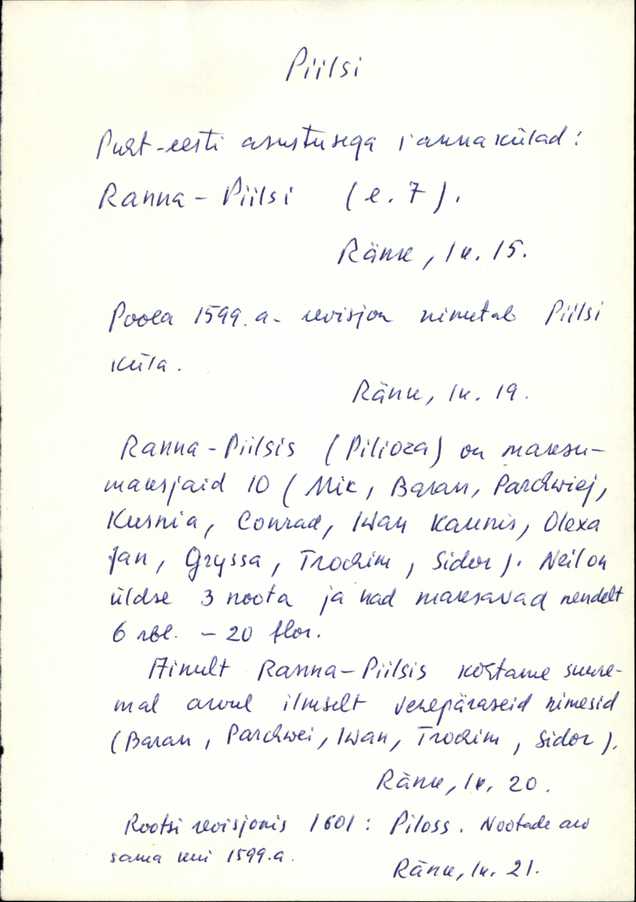 Piilsi
Purt-eesti asustusega rannakülad:
Ranna-Piilsi (e. 7).
Ränk, lk. 15.
Poola 1599.a. revisjon nimetab Piilsi
küla.
Ränk, lk. 19.
Ranna-Piilsis (Pilioza) on maksu-
maksjaid 10 (Mik, Baran, Parchwiej,
Kusnia, Conrad, Iwan Kaunis, Olexa
Jan, Gryssa, Trochim, Sidor). Neil on
üldse 3 noota ja nad maksavad nendelt
6 rbl. - 20 flor.
Ainult Ranna-Piilsis kohtame suure-
mal arvul ilmselt venepäraseid nimesid
(Baran, Parchwei, Iwan, Trochim, Sidor).
Ränk, lk. 20.
Rootsi revisjonis 1601: Piloss. Nootade arv
sama kui 1599.a.
Ränk, lk. 21.